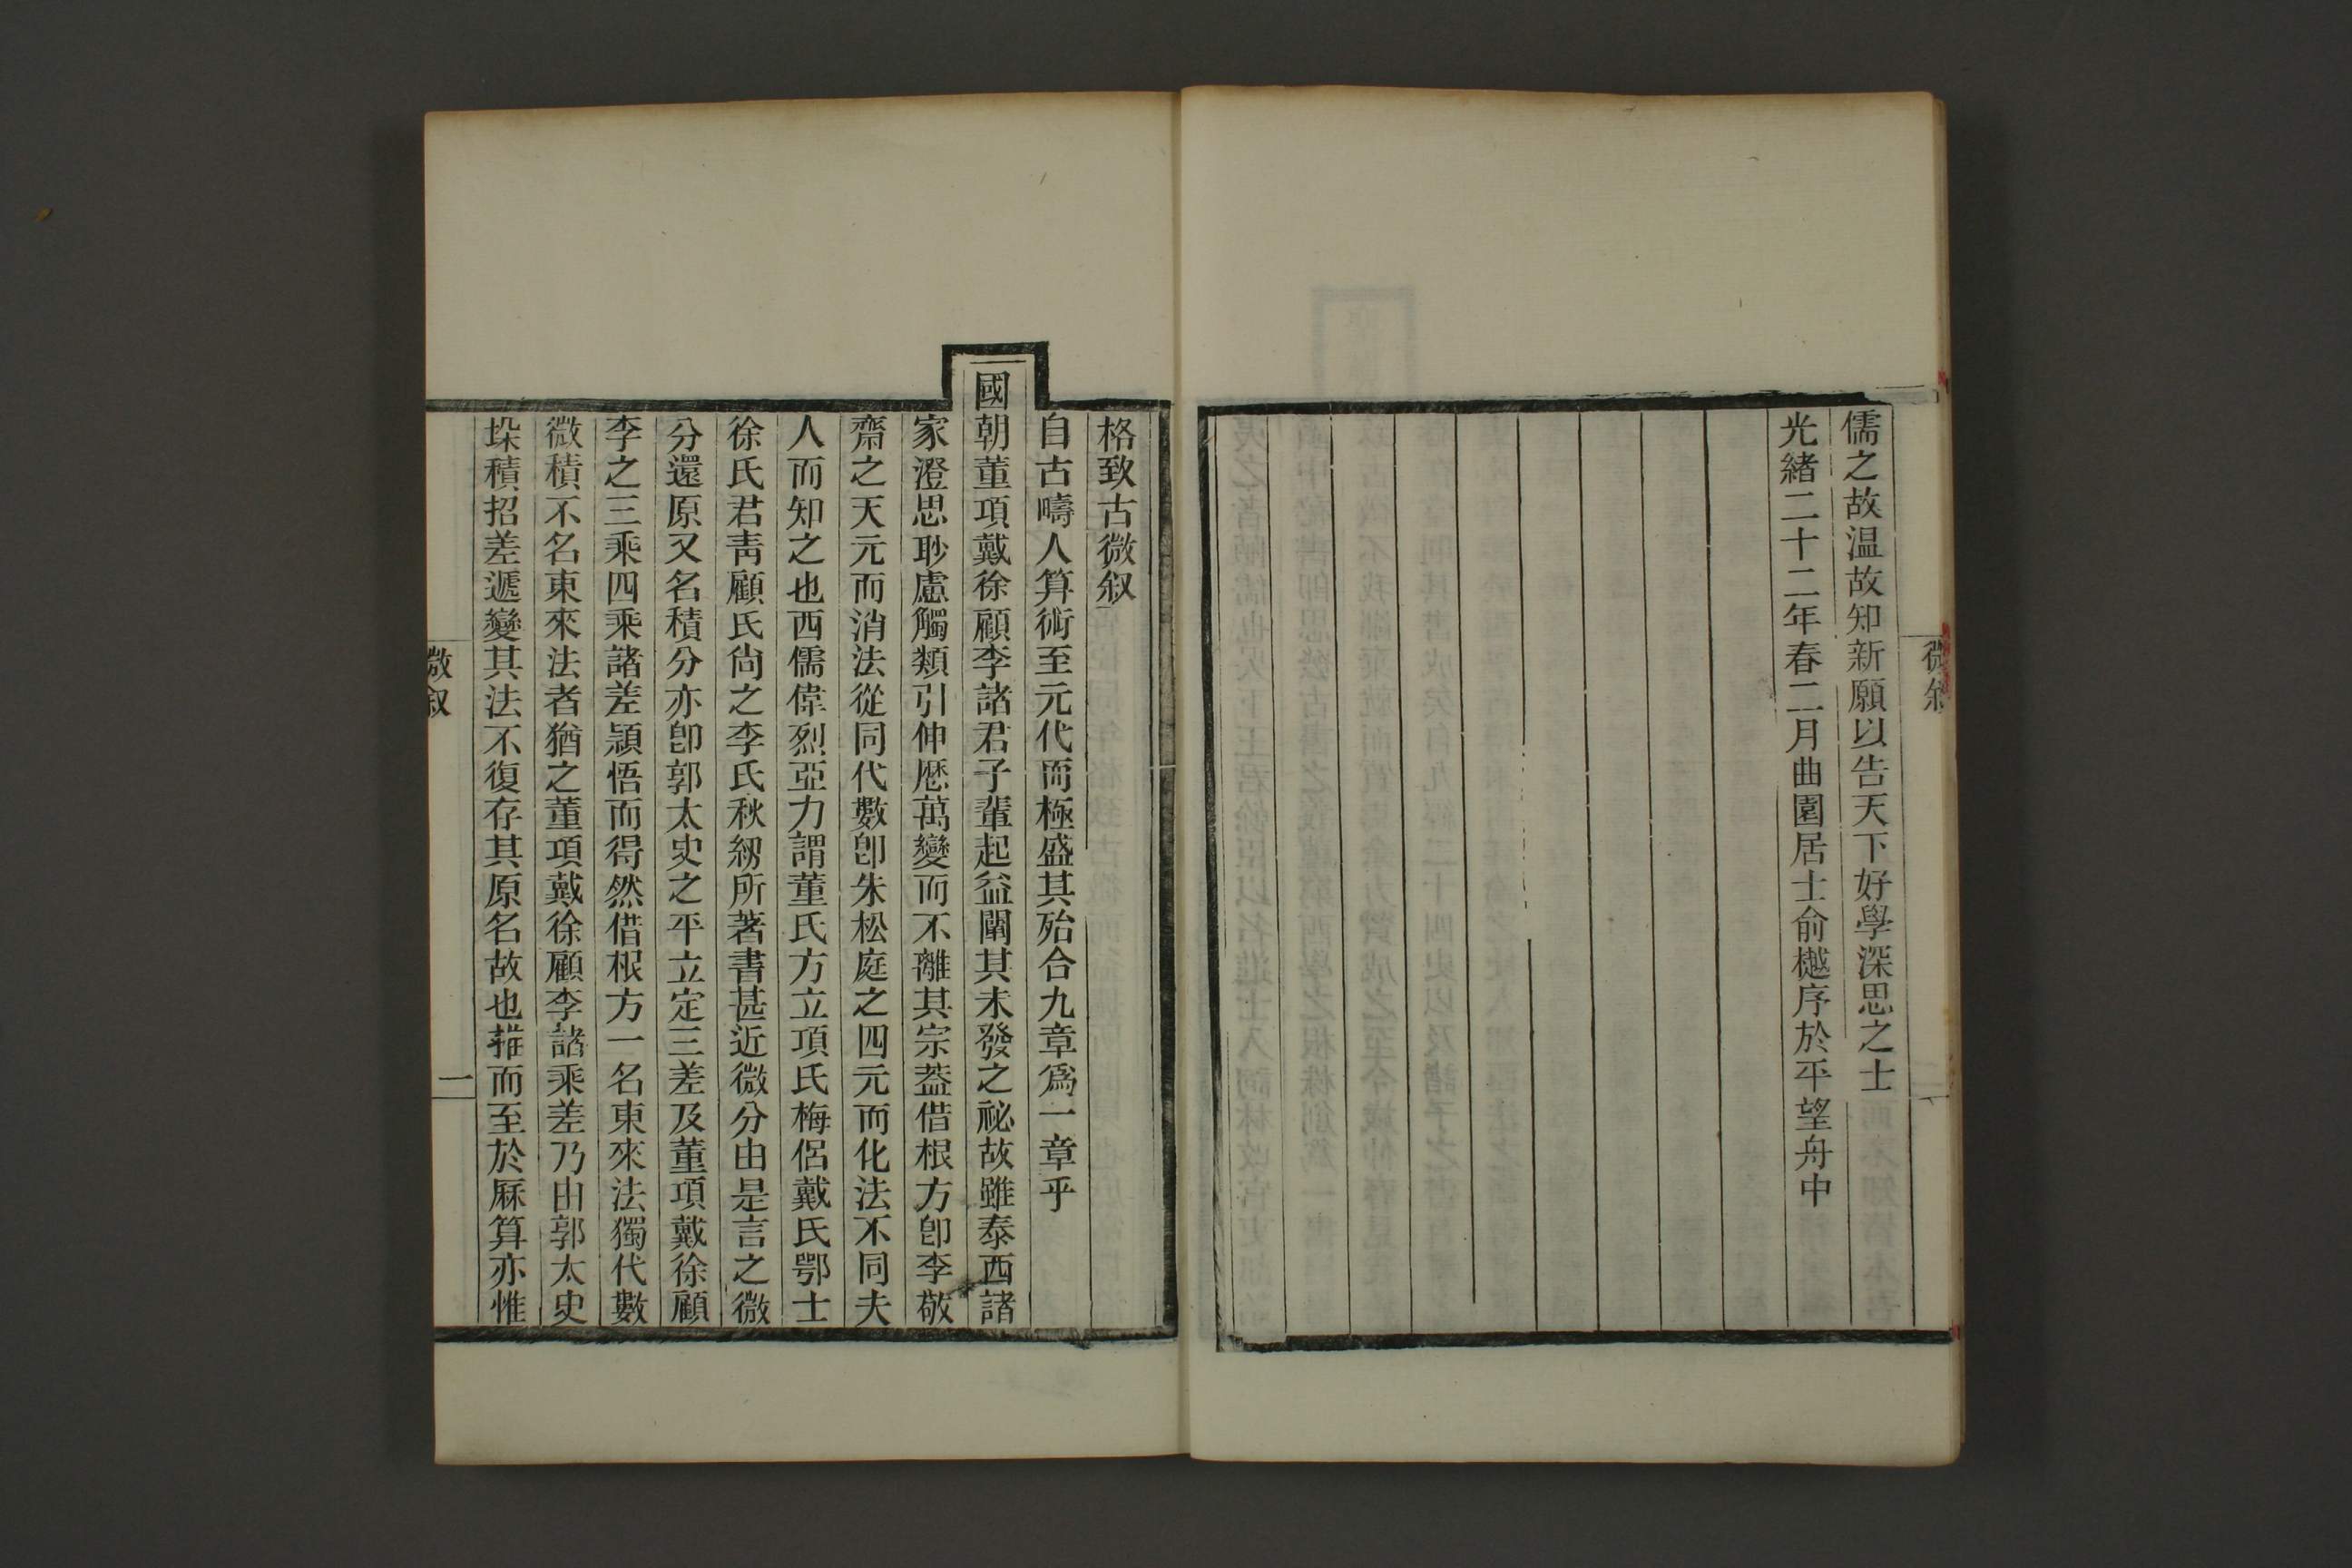 儒之故温故知新願以告天下好學深思之士
光緒二十二年春二月曲園居士俞樾序於平望舟中
格致古微叙
自古疇人算術至元代而極盛其殆合九章爲一章乎
國朝董項戴徐顧李諸君子輩起益闡其未發之祕故雖泰西諸
家澄思眇慮觸類引伸厯萬變而不離其宗葢借根方卽李敬
齋之天元而消法從同代數卽朱松庭之四元而化法不同夫
人而知之也西儒偉烈亞力謂董氏方立項氏梅侶戴氏鄂士
徐氏君靑顧氏尙之李氏秋紉所著書甚近微分由是言之微
分還原又名積分亦卽郭太史之平立定三差及董項戴徐顧
李之三乘四乘諸差頴悟而得然借根方一名東來法獨代數
微積不名東來法者猶之董項戴徐顧李諸乘差乃由郭太史
垜積招差遞變其法不復存其原名故也推而至於厤算亦惟
微叙
一